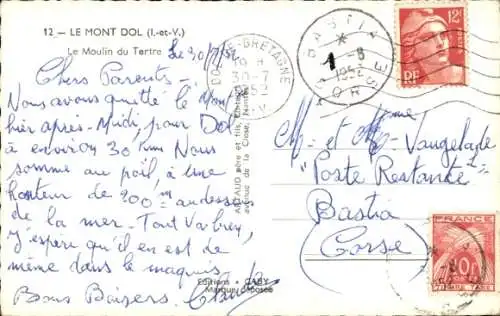 12 - LE MONT DOL (I.-et-V.)
Le Moulin du Tertre
Le 30/7/52
Chers Parents -
Nous avons quitté le Mont
hier après-Midi, pour Dol
à environ 30 Km Nous
somme au poil, à une
hauteur de 200 m au dessus
de la mer - Tout va bien,
j'espère qu'il en est de
même dans le maquis
Bons Baisers
ARTAUD père et fils, Editeurs
avenue de la Close, Nantes
Editions - GABY -
Marque déposée
BRETAGNE
30-7
1952
BASTIA
1 -8
1952
CORSE
12F
RF
Mr et Mme Vaugelade
"Poste Restante"
Bastia
(Corse)
FRANCE
TIMBRE TAXE